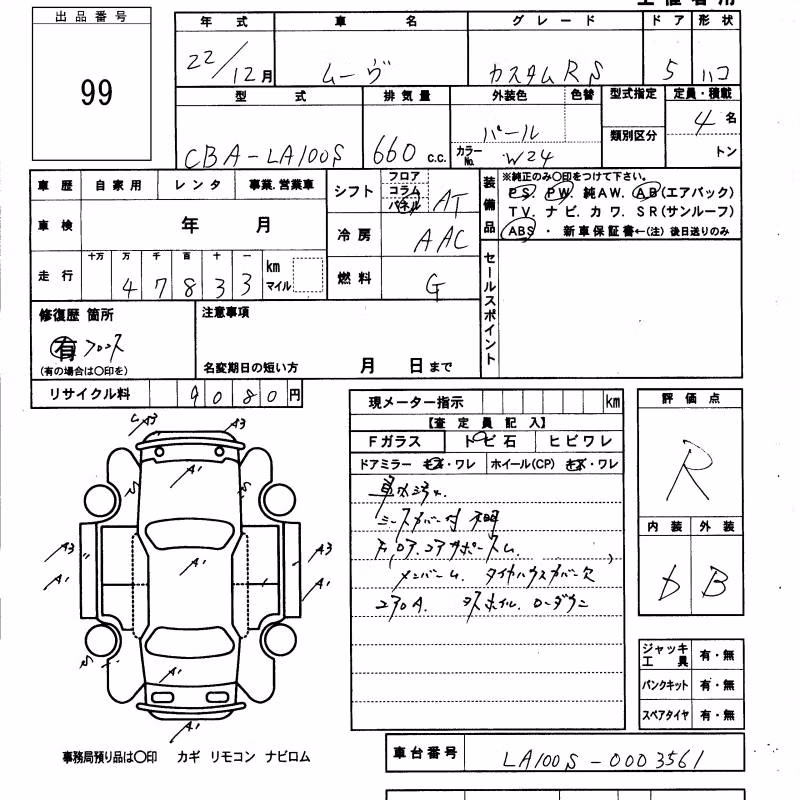 出品番号
99
年式 車名 グレード ドア 形状
22/12月 ムーヴ カスタムRS 5 ハコ
型式 排気量 外装色 色替 型式指定 定員・積載
CBA-LA100S 660 c.c. パール 4名
カラーNo. W24 類別区分 トン
車歴 自家用 レンタ 事業.営業車
車検 年 月
走行 十万 万 千 百 十 一 km マイル
4 7 8 3 3
シフト フロア コラム パネル AT
冷房 AAC
燃料 G
装備品 ※純正のみ〇印をつけて下さい。
PS. PW. 純AW. AB(エアバック)
TV. ナビ. カワ. SR(サンルーフ)
ABS ・ 新車保証書←(注)後日送りのみ
セールスポイント
修復歴 箇所
有 フロント
(有の場合は〇印を)
注意事項
名変期日の短い方 月 日まで
リサイクル料 9 0 8 0 円
現メーター指示 km
【査定員記入】
Fガラス トビ石 ヒビワレ
ドアミラー キズ・ワレ ホイール(CP) キズ・ワレ
シートカバー付 不明
メンバーム. タイヤハウスカバー欠
ローダウン
評価点
R
内装 外装
D B
A3 A3
A1
A3 A3
A1 A1 A1
A1
A1
ジャッキ工具 有・無
パンクキット 有・無
スペアタイヤ 有・無
事務局預り品は〇印 カギ リモコン ナビロム
車台番号 LA100S-0003561